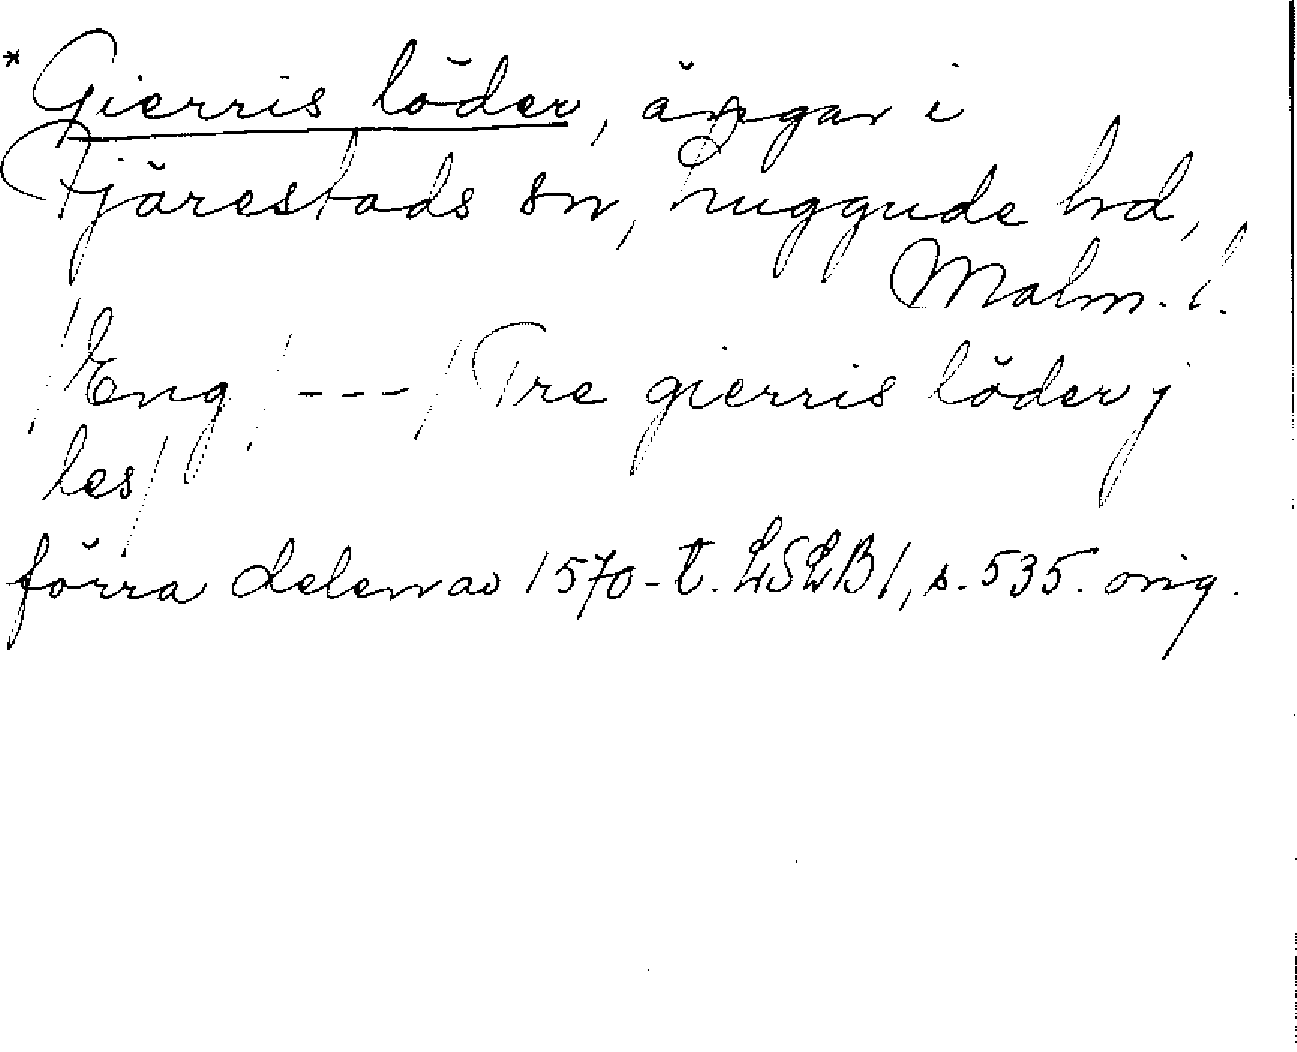 * Gierris löder, ängar i
Fjärestads sn, Luggude hd,
Malm. l.
/Eng/ --- / Tre gierris löder j
les/
förra delen av 1570-t. LSLB1, s. 535. orig.